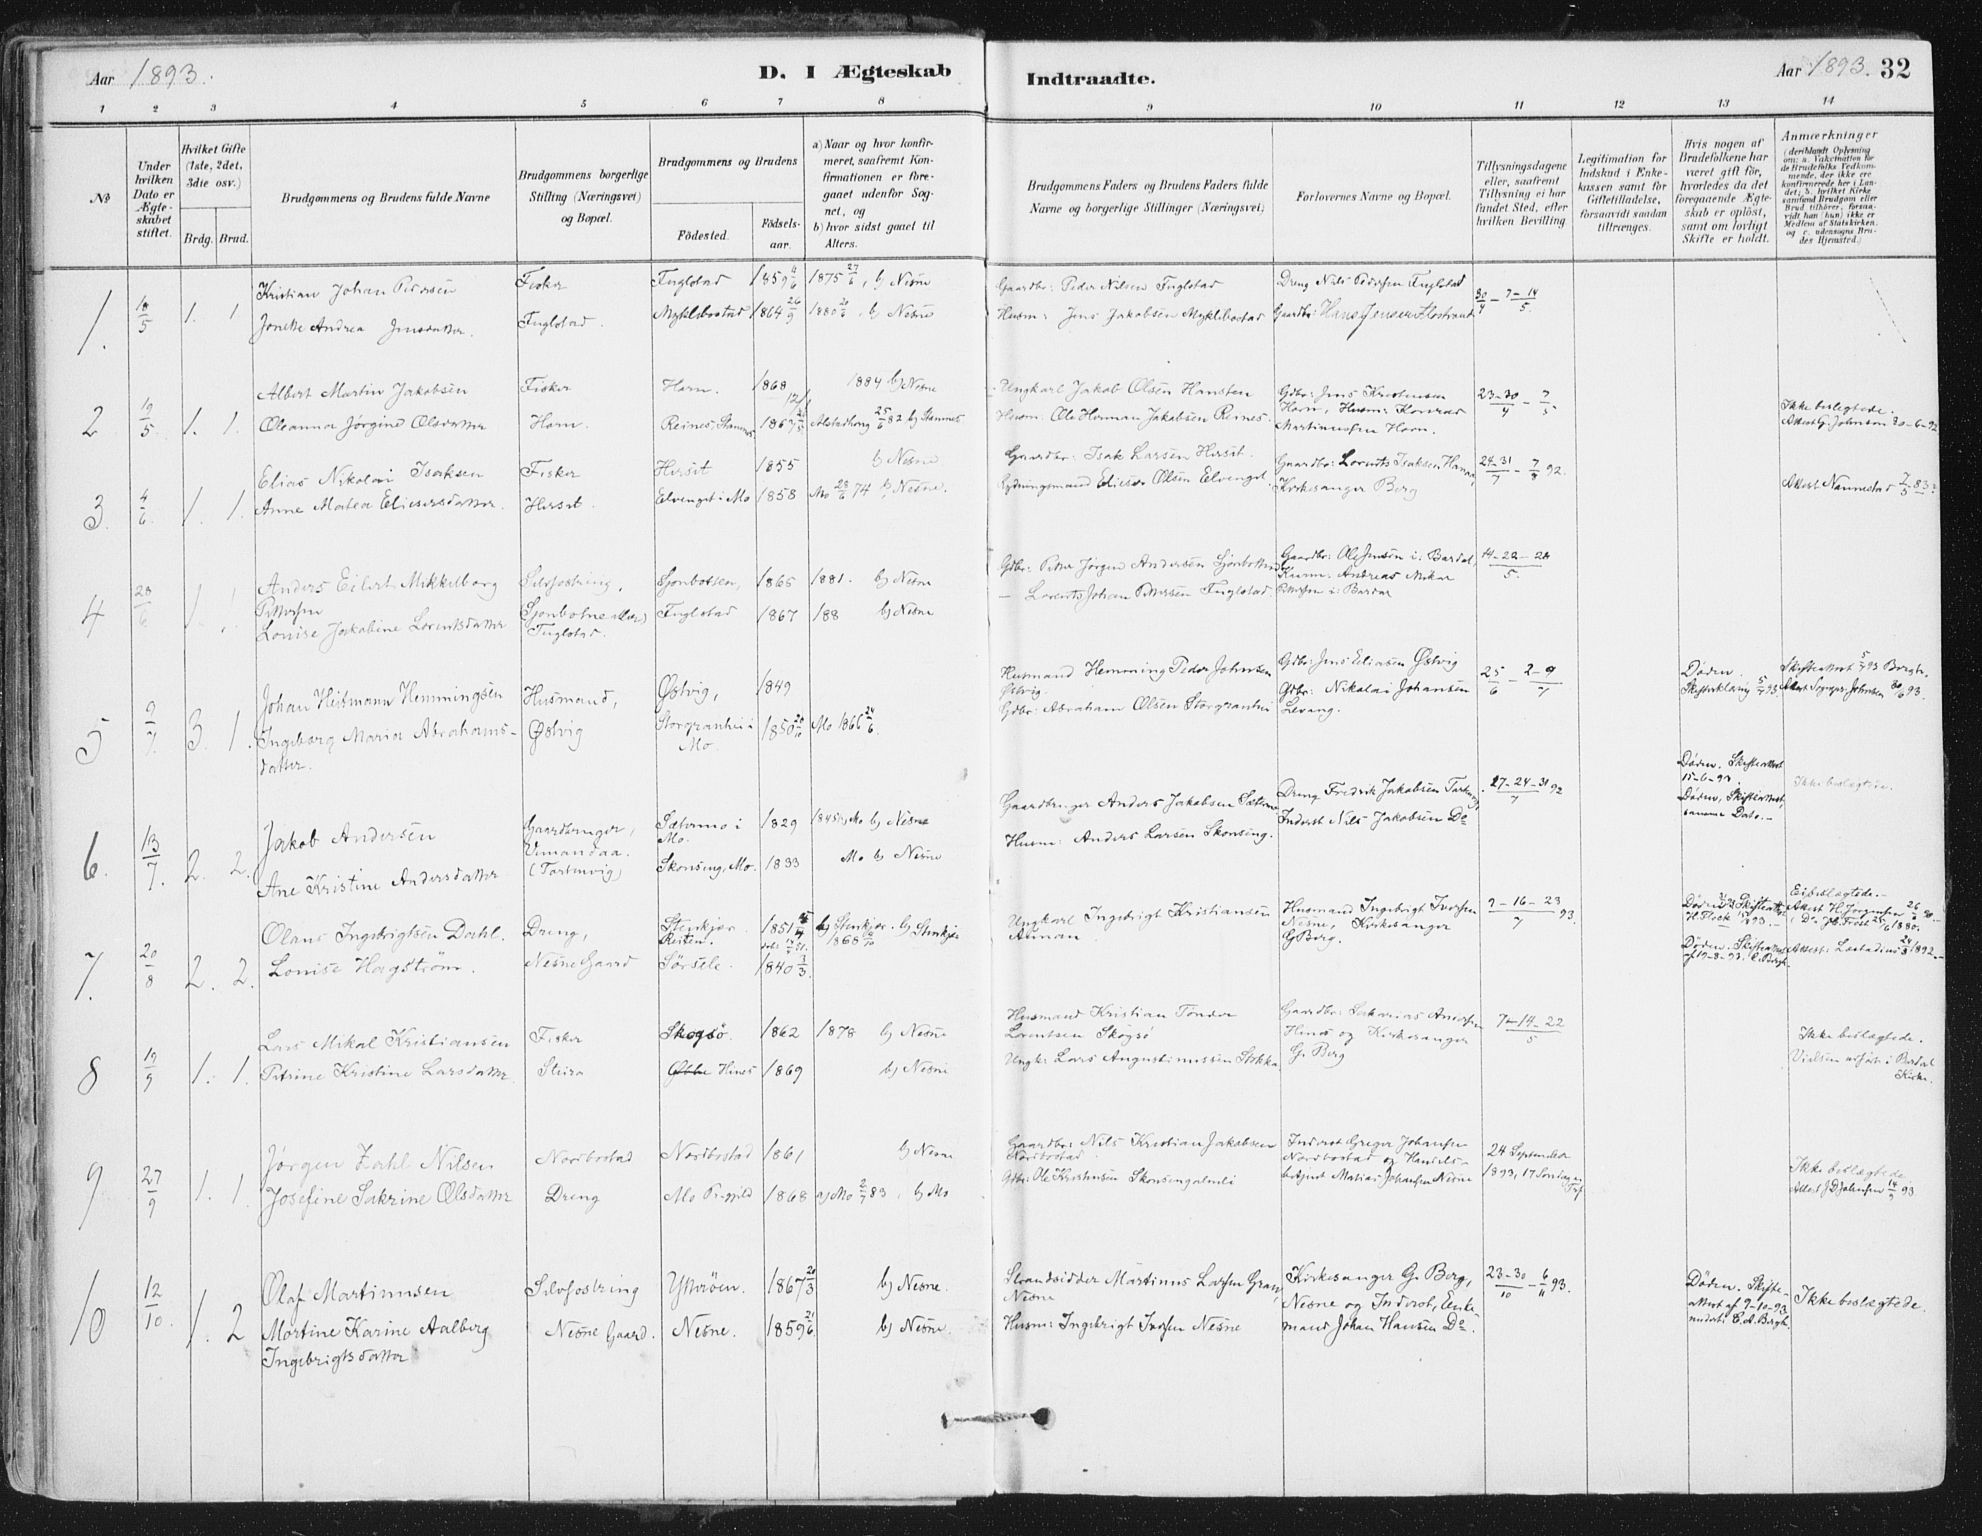 Aar 1893.
D. I Ægteskab
Indtraadte.
Aar 1893. 32
1 2 3 4 5 6 7 8 9 10 11 12 13 14
No
Under hvilken Dato er Ægteskabet stiftet.
Hvilket Gifte (1ste, 2det, 3die osv.)
Brdg. Brud.
Brudgommens og Brudens fulde Navne
Brudgommens borgerlige Stilling (Næringsvei) og Bopæl.
Brudgommens og Brudens
Fødested.
Fødselsaar.
a) Naar og hvor konfirmeret, saafremt Konfirmationen er foregaaet udenfor Sognet, og
b) hvor sidst gaaet til Alters.
Brudgommens Faders og Brudens Faders fulde Navne og borgerlige Stillinger (Næringsvei)
Forlovernes Navne og Bopæl.
Tillysningsdagene eller, saafremt Tillysning ei har fundet Sted, efter hvilken Bevilling
Legitimation for Indskud i Enkekassen samt for Giftetilladelse, forsaavidt saadan tiltrænges.
Hvis nogen af Brudefolkene har været gift før, hvorledes da det foregaaende Ægteskab er opløst, samt om lovligt Skifte er holdt.
Anmærkninger
(deriblandt Oplysning om: a. Vakcination for de Brudefolks Vedkommende, der ikke ere konfirmerede her i Landet; b. hvilket Kirkesamfund Brudgom eller Brud tilhører, forsaavidt han (hun) ikke er Medlem af Statskirken, og c. udensogns Brudes Hjemsted.)
1. 18/5 1. 1
Kristian Johan Pedersen Fisker Fuglstad 1859 4/6 1875 27/6, b) Nesne
Gaardbr: Peder Nilsen Fuglstad Dreng Nils Pedersen Fuglstad 30/4 – 7–14/5.
Jonette Andrea Jensdatter. Fuglstad. Myklebostad 1864 26/9 1880 20/6, b) Nesne
Husm: Jens Jakobsen Myklebostad Gaardbr: Hans Jensen
2 19/5. 1. 1.
Albert Martin Jakobsen Fisker Horn. 1868 1884 b) Nesne
Ungkarl Jakob Olsen Hansten Gdbr: Jens Kristensen Horn, Husm: Konrad Martinussen Horn. 23–30/4 – 7/5
Oleanna Jørgine Olsdatter Horn. Reines, Stamnes 1867 Alstadhoug 25/6 82 b) Stamnes
Husm: Ole Herman Jakobsen Reines.
Ikke beslegtede. Attest G. Johnson 30-6-92
3. 4/6 1. 1.
Elias Nikolai Isaksen Fisker Hersit 1855 b) Nesne
Gaardbr: Isak Larsen Hersit. Gaardbr: Lorents Isaksen 24–31/7 – 7/8 92.
Anne Matea Eliesersdatter Hersit. Elvenget i Mo 1858 Mo 28/6 74 b) Nesne.
Rydningsmand Elieser Olsen Elvenget. Kirkesanger Berg
4 28/6 1. 1
Anders Eilert Mikkelborg Pettersen Selvfostring, Sjonbotten, 1865 1881. b) Nesne
Gdbr: Petter Jørgen Andersen Sjonbotten Gaardbr: Ole Jensen i Bardal, 14–22–28/5.
Louise Jakobine Lorentsdatter Fuglstad. Fuglstad 1867 188 b) Nesne
— Lorents Johan Pettersen Fuglstad Pettersen i Bardal
5 9/7. 3. 1.
Johan Heitmann Hemmingsen Husmand, Østvig, 1849
Husmand Hemming Peder Johnsen Østvig. Gdbr: Jens Eliasen Østvig 25/6 – 2–9/7 Døden.
Ingeborg Maria Abrahamsdatter. Østvig Storgranhei i Mo. 1850 Mo 1866 24/6.
Gdbr: Abraham Olsen Storgranhei Gdbr: Nikolai Johansen Levang.
6. 13/7. 2. 2.
Jakob Andersen Gaardbruger, Sæternes i Mo. 1829 Mo b) Nesne
Gaardbruger Anders Jakobsen Dreng Fredrik Jakobsen 17–24–31/7 92
Ane Kristine Andersdatter (Tortenvig) Skonseng, Mo. 1833 Mo b) Nesne
Husm: Anders Larsen Skonseng. Inderst Nils Jakobsen Do
Døden. Skifteattest 15-6-93. Døden, Skifteattest samme Dato.—
Ikke beslægtede.
7. 20/8 2. 2.
Olaus Ingebrigtsen Dahl. Dreng, Stenkjær 1851 b) Stenkjær
Ungkarl Ingebrigt Kristiansen Aunan. Husmand Ingebrigt Iversen Nesne, Kirkesanger G. Berg. 9–16–23/7 93.
Louise Hagstrøm. Nesne Gaard Sørsele. 1840 3/3.
8 19/9 1. 1.
Lars Mikal Kristiansen Fisker Skogsø. 1862 1878 b) Nesne
Husmand Kristian Tønder Lorentsen Skogsø Gaardbr: Sakarias Andersen Hines og Kirkesanger G. Berg 7–14–22/5
Petrine Kristine Larsdatter. Steira Hines 1869 b) Nesne
Ungk: Lars Augustinussen Stokka
Ikke beslægtede. Vielsen udført i Bardal Kirke.
9 27/9 1. 1
Jørgen Zahl Nilsen Nordbostad Nordbostad 1861 b) Nesne
Gaardbr: Nils Kristian Jakobsen Nordbostad. Inderst Greger Johansen Nordbostad og Handelsbetjent Matias Johansen Nesne 24 September 1893, 17 Søndag
Josefine Sakrine Olsdatter Dreng Mo Prgjeld 1868 a) Mo 2/7 83, b) Mo
Gdbr: Ole Kristensen
Ikke beslægtede Attest J. D. Johnson 14/9 93
10 12/10. 1. 2
Olaf Martinusen Selvfostring Ytterøen. 1867 20/3 b) Nesne.
Strandsidder Martinus Larsen Gran, Nesne Kirkesanger G. Berg, Nesne og Inderst, Enkemand Johan Hansen Do. 23–30/10 – 6/11 93.
Martine Karine Aalberg Ingebrigtsdatter Nesne Gaard. Nesne. 1859 21/6. b) Nesne.
Husm: Ingebrigt Iversen Nesne
Døden. Skifteattest af 9-10-93
Ikke beslægtede.